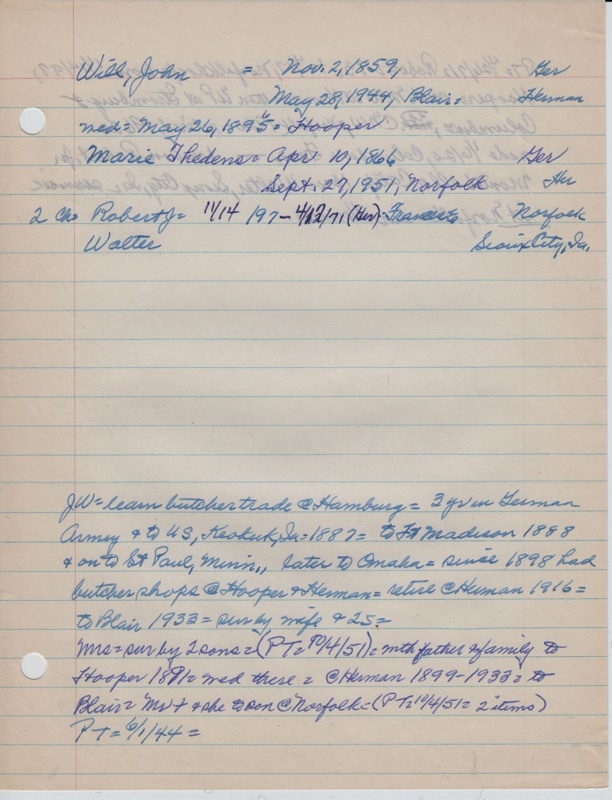 Will, John = Nov. 2, 1859, Ger
May 28, 1944, Blair = Herman
med = May 26, 1895 = Hooper
Marie Thedens = Apr. 10, 1866 Ger
Sept. 27, 1951, Norfolk Her
2 Ch = Robert J = 11/14 197 - 4/12/71 (Her) - Frances Norfolk
Walter Sioux City, Ia.
JW = learn butcher trade @ Hamburg = 3 yr in German
Army & to US, Keokuk, Ia = 1887 = to Ft Madison 1888
& on to St Paul, Minn., later to Omaha = since 1898 had
butcher shops @ Hooper & Herman = retire @ Herman 1916 =
to Blair 1933 = sur by wife & 2 S =
Mrs = sur by 2 sons = (PT = 10/4/51) = with father & family to
Hooper 1891 = med there = @ Herman 1899-1933 = to
Blair = Mr + & she to son @ Norfolk = (PT = 10/4/51 = 2 items)
PT = 6/1/44 =